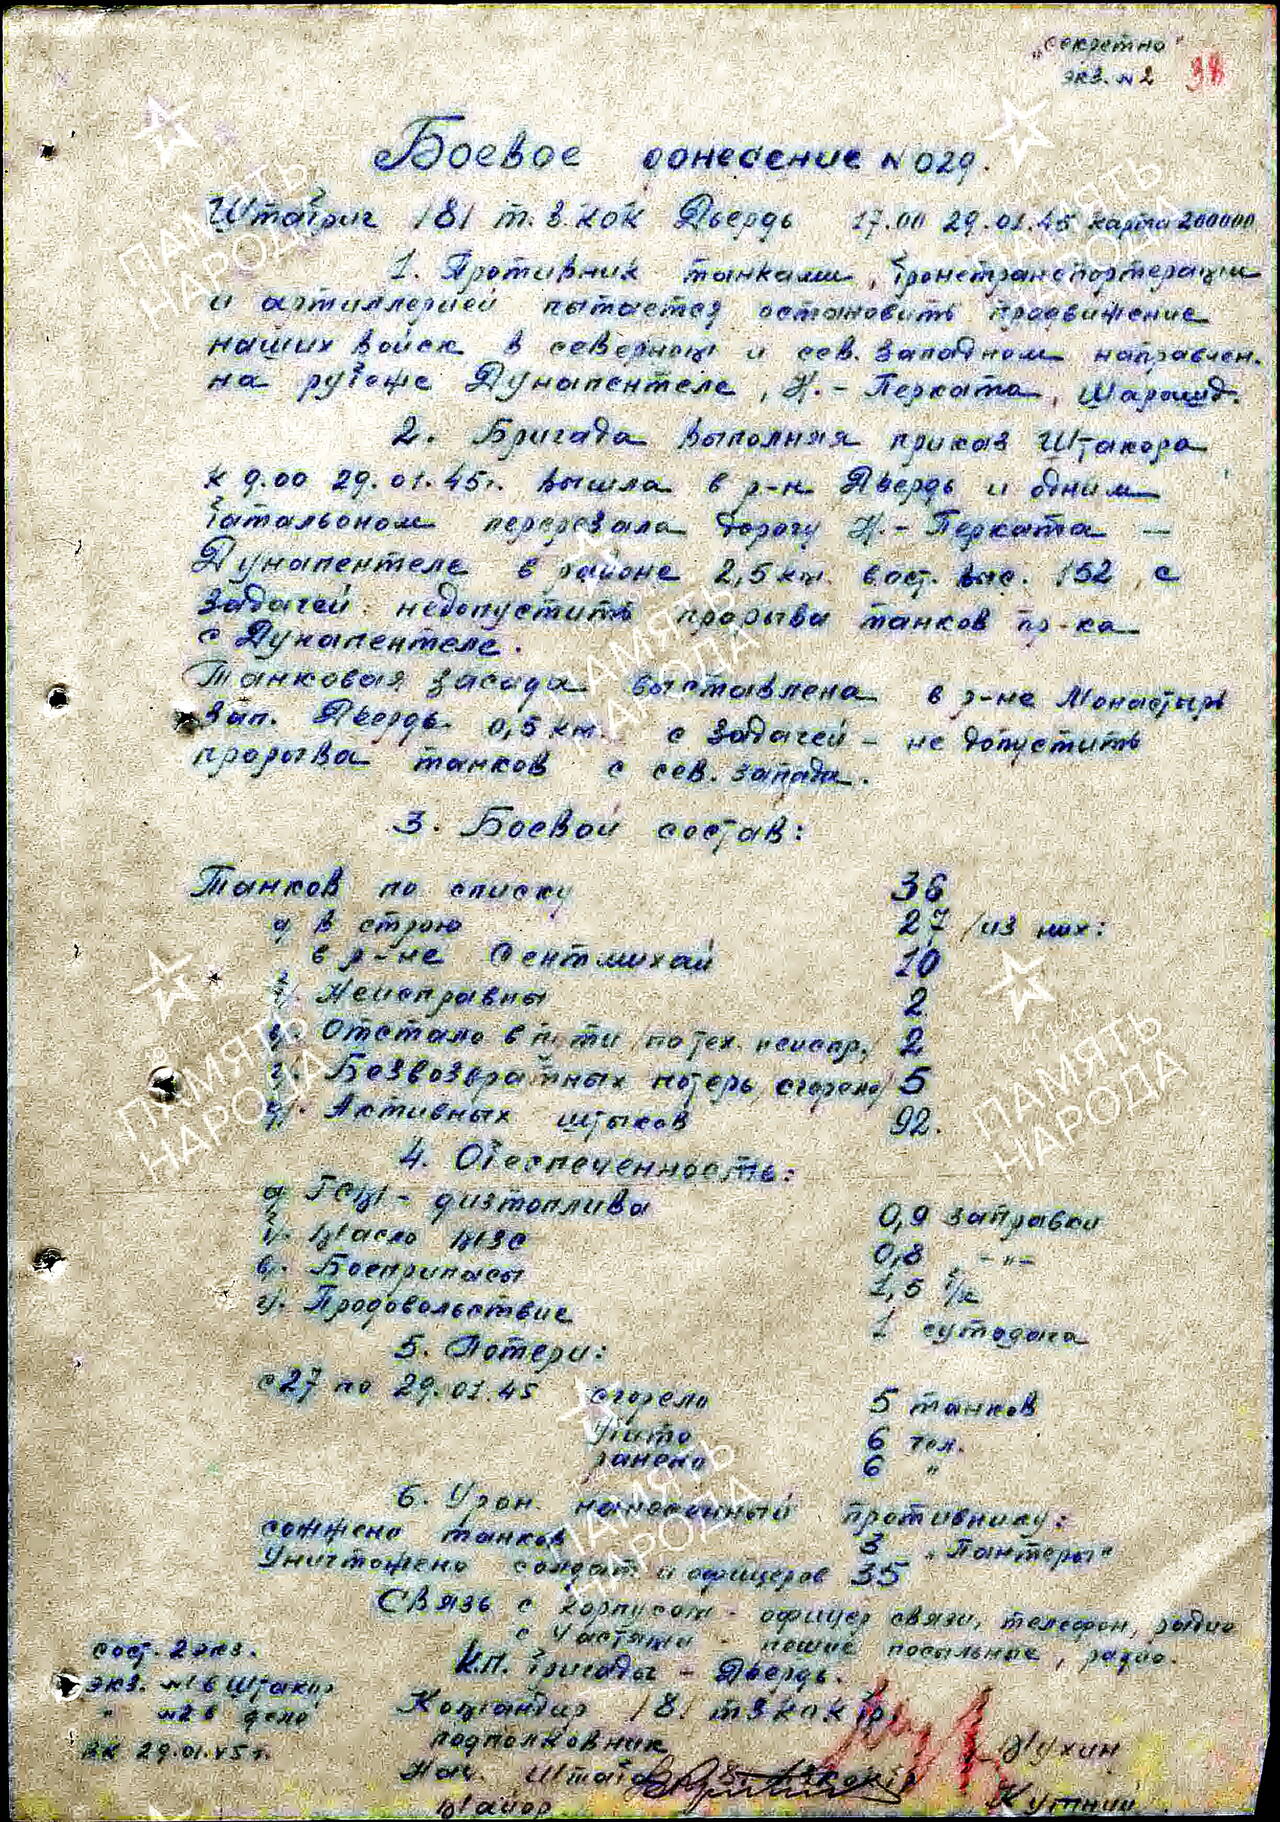 "Секретно"
экз. №2
38
Боевое донесение №029.
Штабриг 181 т.З.КОК Двердь 17.00 29.01.45 карта 200000
1. Противник танками, бронетранспортерами
и артиллерией пытается остановить продвижение
наших войск в северном и сев. западном направлен.
на рубеже Дунапентеле, Н.-Перката, Шарошд.
2. Бригада выполняя приказ Штакора
к 9.00 29.01.45г. вышла в р-н Двердь и одним
батальоном перерезала дорогу Н.-Перката —
Дунапентеле в районе 2,5 км. вост. выс. 152, с
задачей недопустить прорыва танков пр-ка
с Дунапентеле.
Танковая засада выставлена в р-не Монастырь
зап. Двердь 0,5 км. с задачей - не допустить
прорыва танков с сев. запада.
3. Боевой состав:
Танков по списку 36
а/ в строю 27 /из них:
в р-не Сентмихай 10
б/. Неисправны 2
в/. Отстало в пути /по тех. неиспр./ 2
г/. Безвозвратных потерь /сгорело/ 5
д/. Активных штыков 92.
4. Обеспеченность:
а/ ГСМ - дизтоплива 0,9 заправки
б/. Масло МЗС 0,8 -"-
в/. Боеприпасы 1,5 б/к
г/. Продовольствие 1 сутодача
5. Потери:
с 27 по 29.01.45 сгорело 5 танков
убито 6 чел.
ранено 6 "
6. Урон нанесенный противнику:
сожжено танков 3 "Пантеры"
Уничтожено солдат и офицеров 35
Связь с корпусом - офицер связи, телефон, радио
с частями - пешие посыльные, радио.
К.П. бригады - Двердь.
сост. 2 экз.
экз. №1 в Штакор
" №2 в дело
ВК 29.01.45г.
Командир 181 тЗКОК бр
подполковник Мухин
Нач. штаба
Майор Кутний
ПАМЯТЬ
НАРОДА
ПАМЯТЬ
НАРОДА
ПАМЯТЬ
НАРОДА
ПАМЯТЬ
НАРОДА
ПАМЯТЬ
НАРОДА
ПАМЯТЬ
НАРОДА